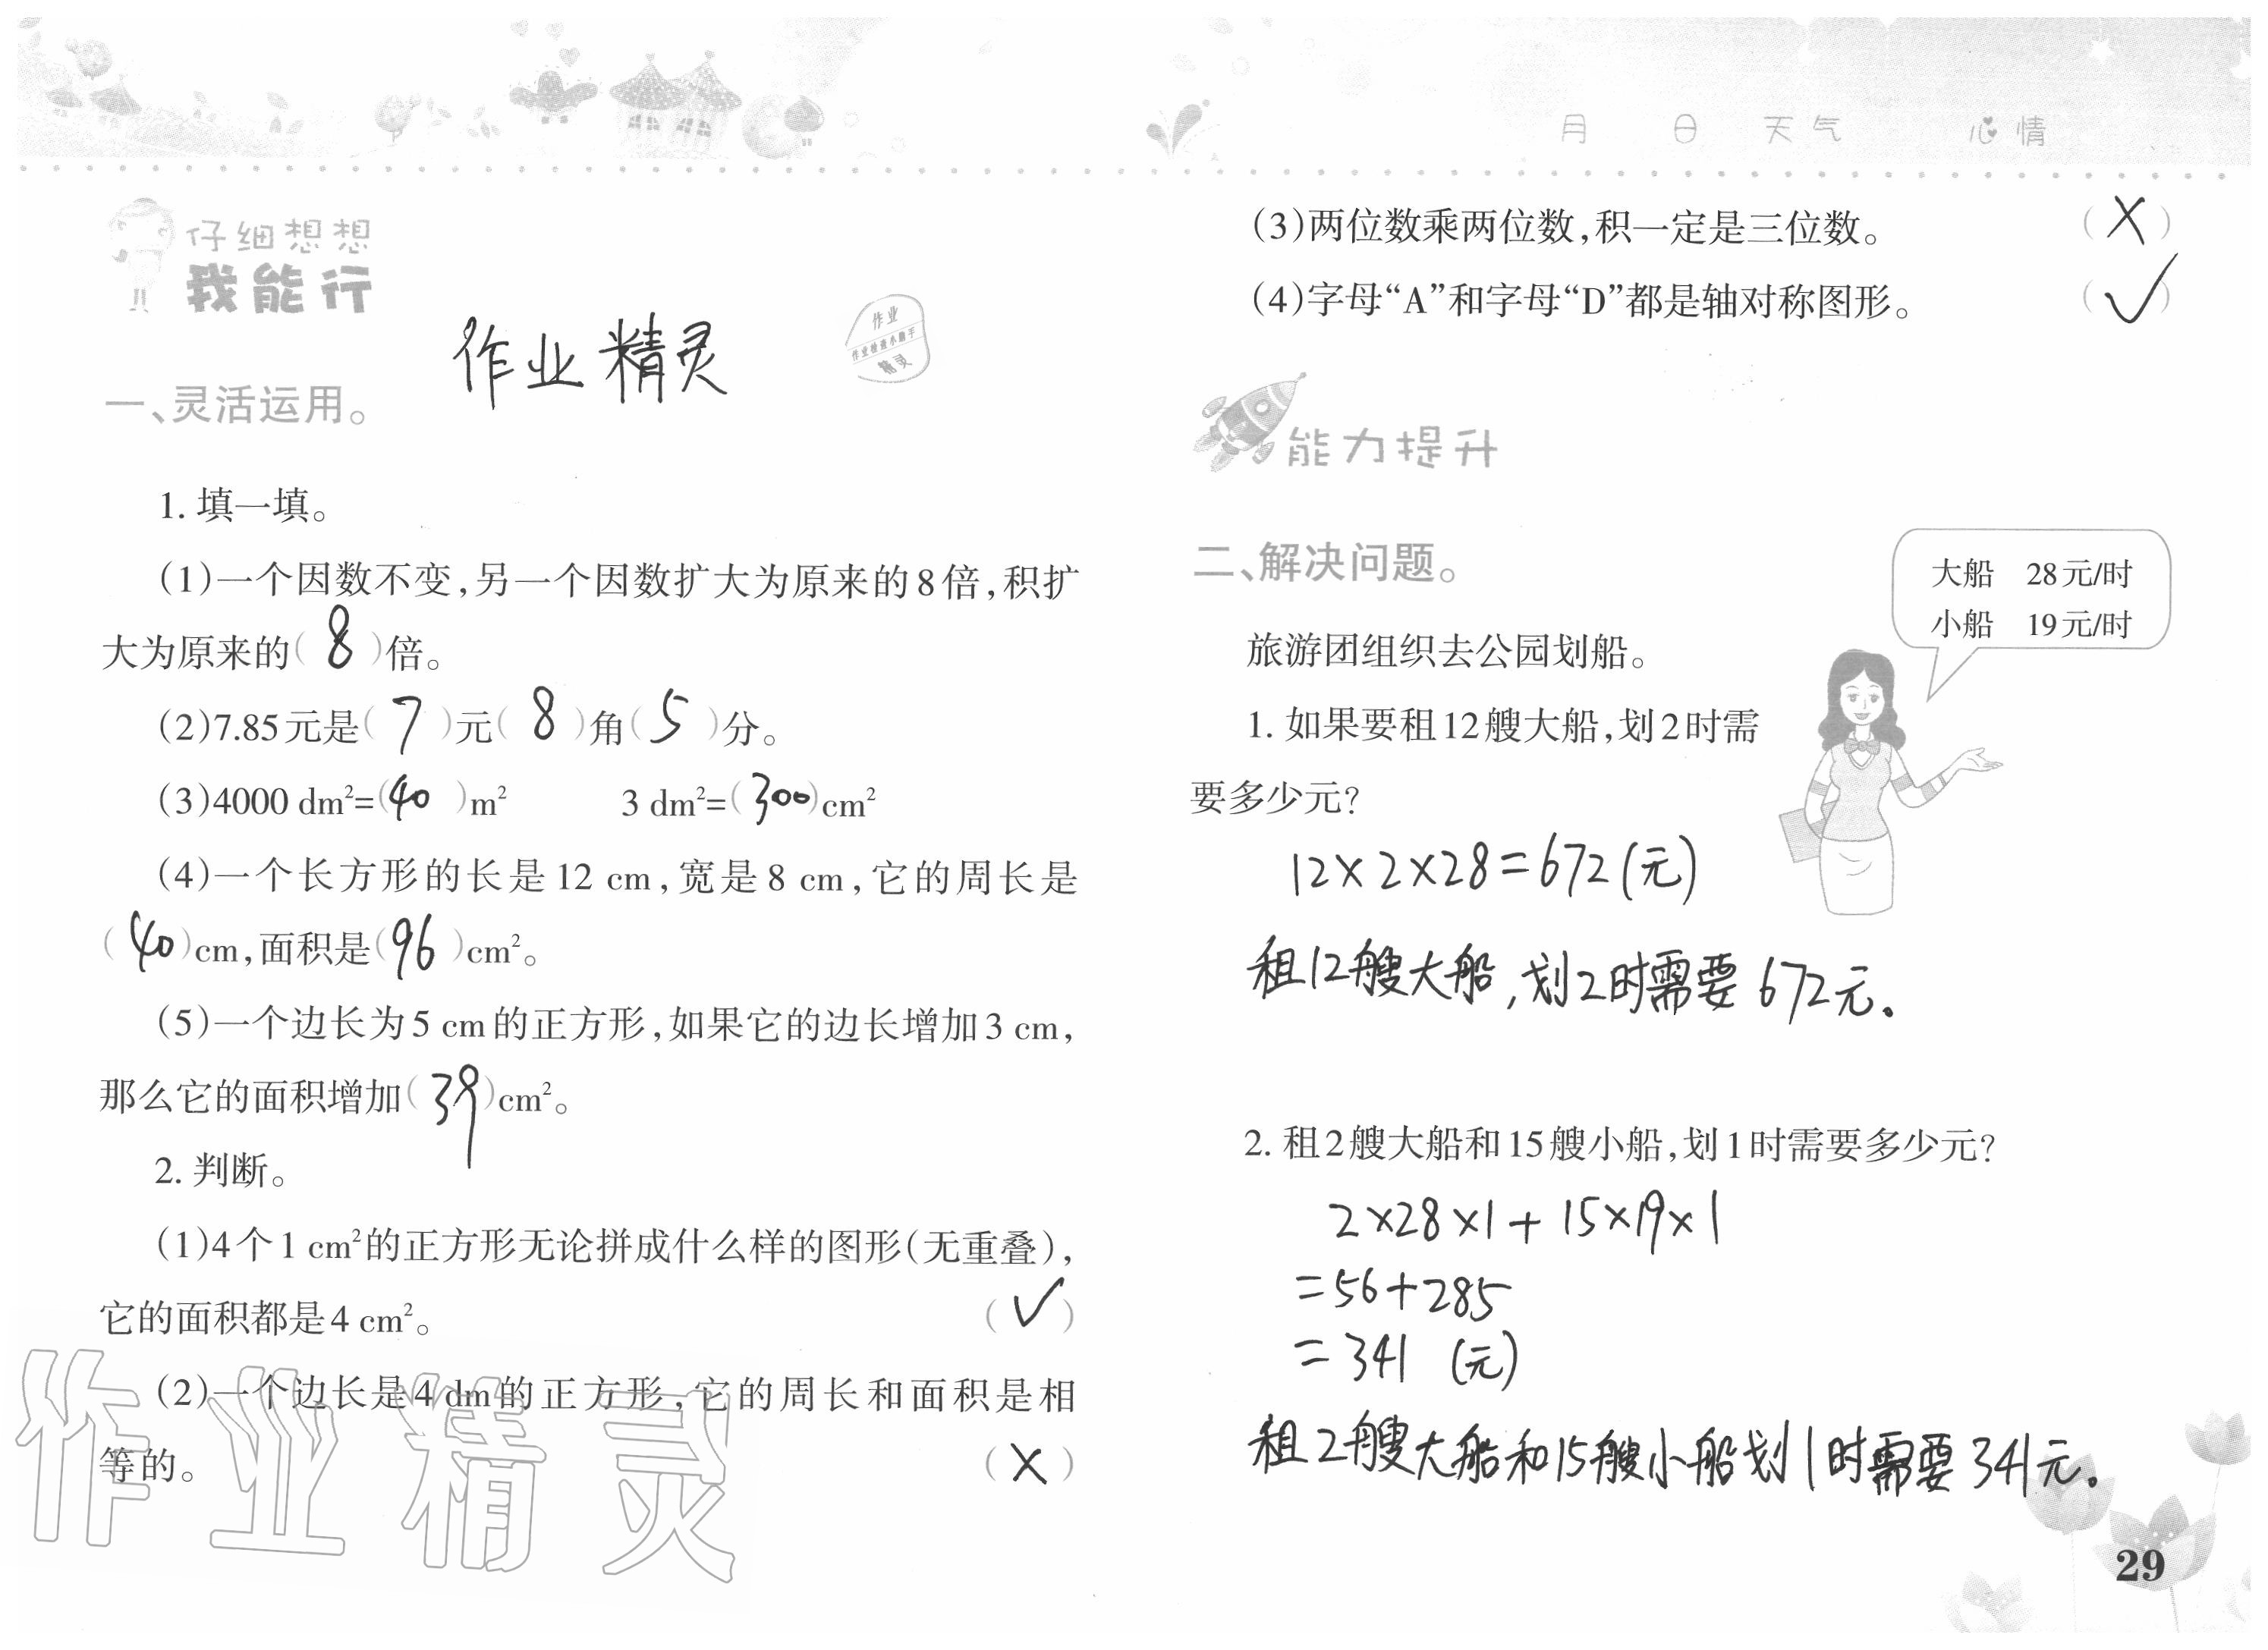 月 日 天气 心情
仔细想想
我能行
作业精灵
作业
精灵
一、灵活运用。
1. 填一填。
(1)一个因数不变,另一个因数扩大为原来的8倍,积扩
大为原来的( 8 )倍。
(2)7.85元是( 7 )元( 8 )角( 5 )分。
(3)4000 dm²=(40 )m² 3 dm²=(300)cm²
(4)一个长方形的长是12 cm,宽是8 cm,它的周长是
(40)cm,面积是(96 )cm²。
(5)一个边长为5 cm的正方形,如果它的边长增加3 cm,
那么它的面积增加(39)cm²。
2. 判断。
(1)4个1 cm²的正方形无论拼成什么样的图形(无重叠),
它的面积都是4 cm²。 (✓)
(2)一个边长是4 dm的正方形,它的周长和面积是相
等的。 (×)
作业精灵
(3)两位数乘两位数,积一定是三位数。 (×)
(4)字母“A”和字母“D”都是轴对称图形。 (✓)
能力提升
二、解决问题。
大船 28元/时
小船 19元/时
旅游团组织去公园划船。
1. 如果要租12艘大船,划2时需
要多少元?
12×2×28=672(元)
租12艘大船,划2时需要672元.
2. 租2艘大船和15艘小船,划1时需要多少元?
2×28×1+15×19×1
=56+285
=341 (元)
租2艘大船和15艘小船划1时需要341元。
29